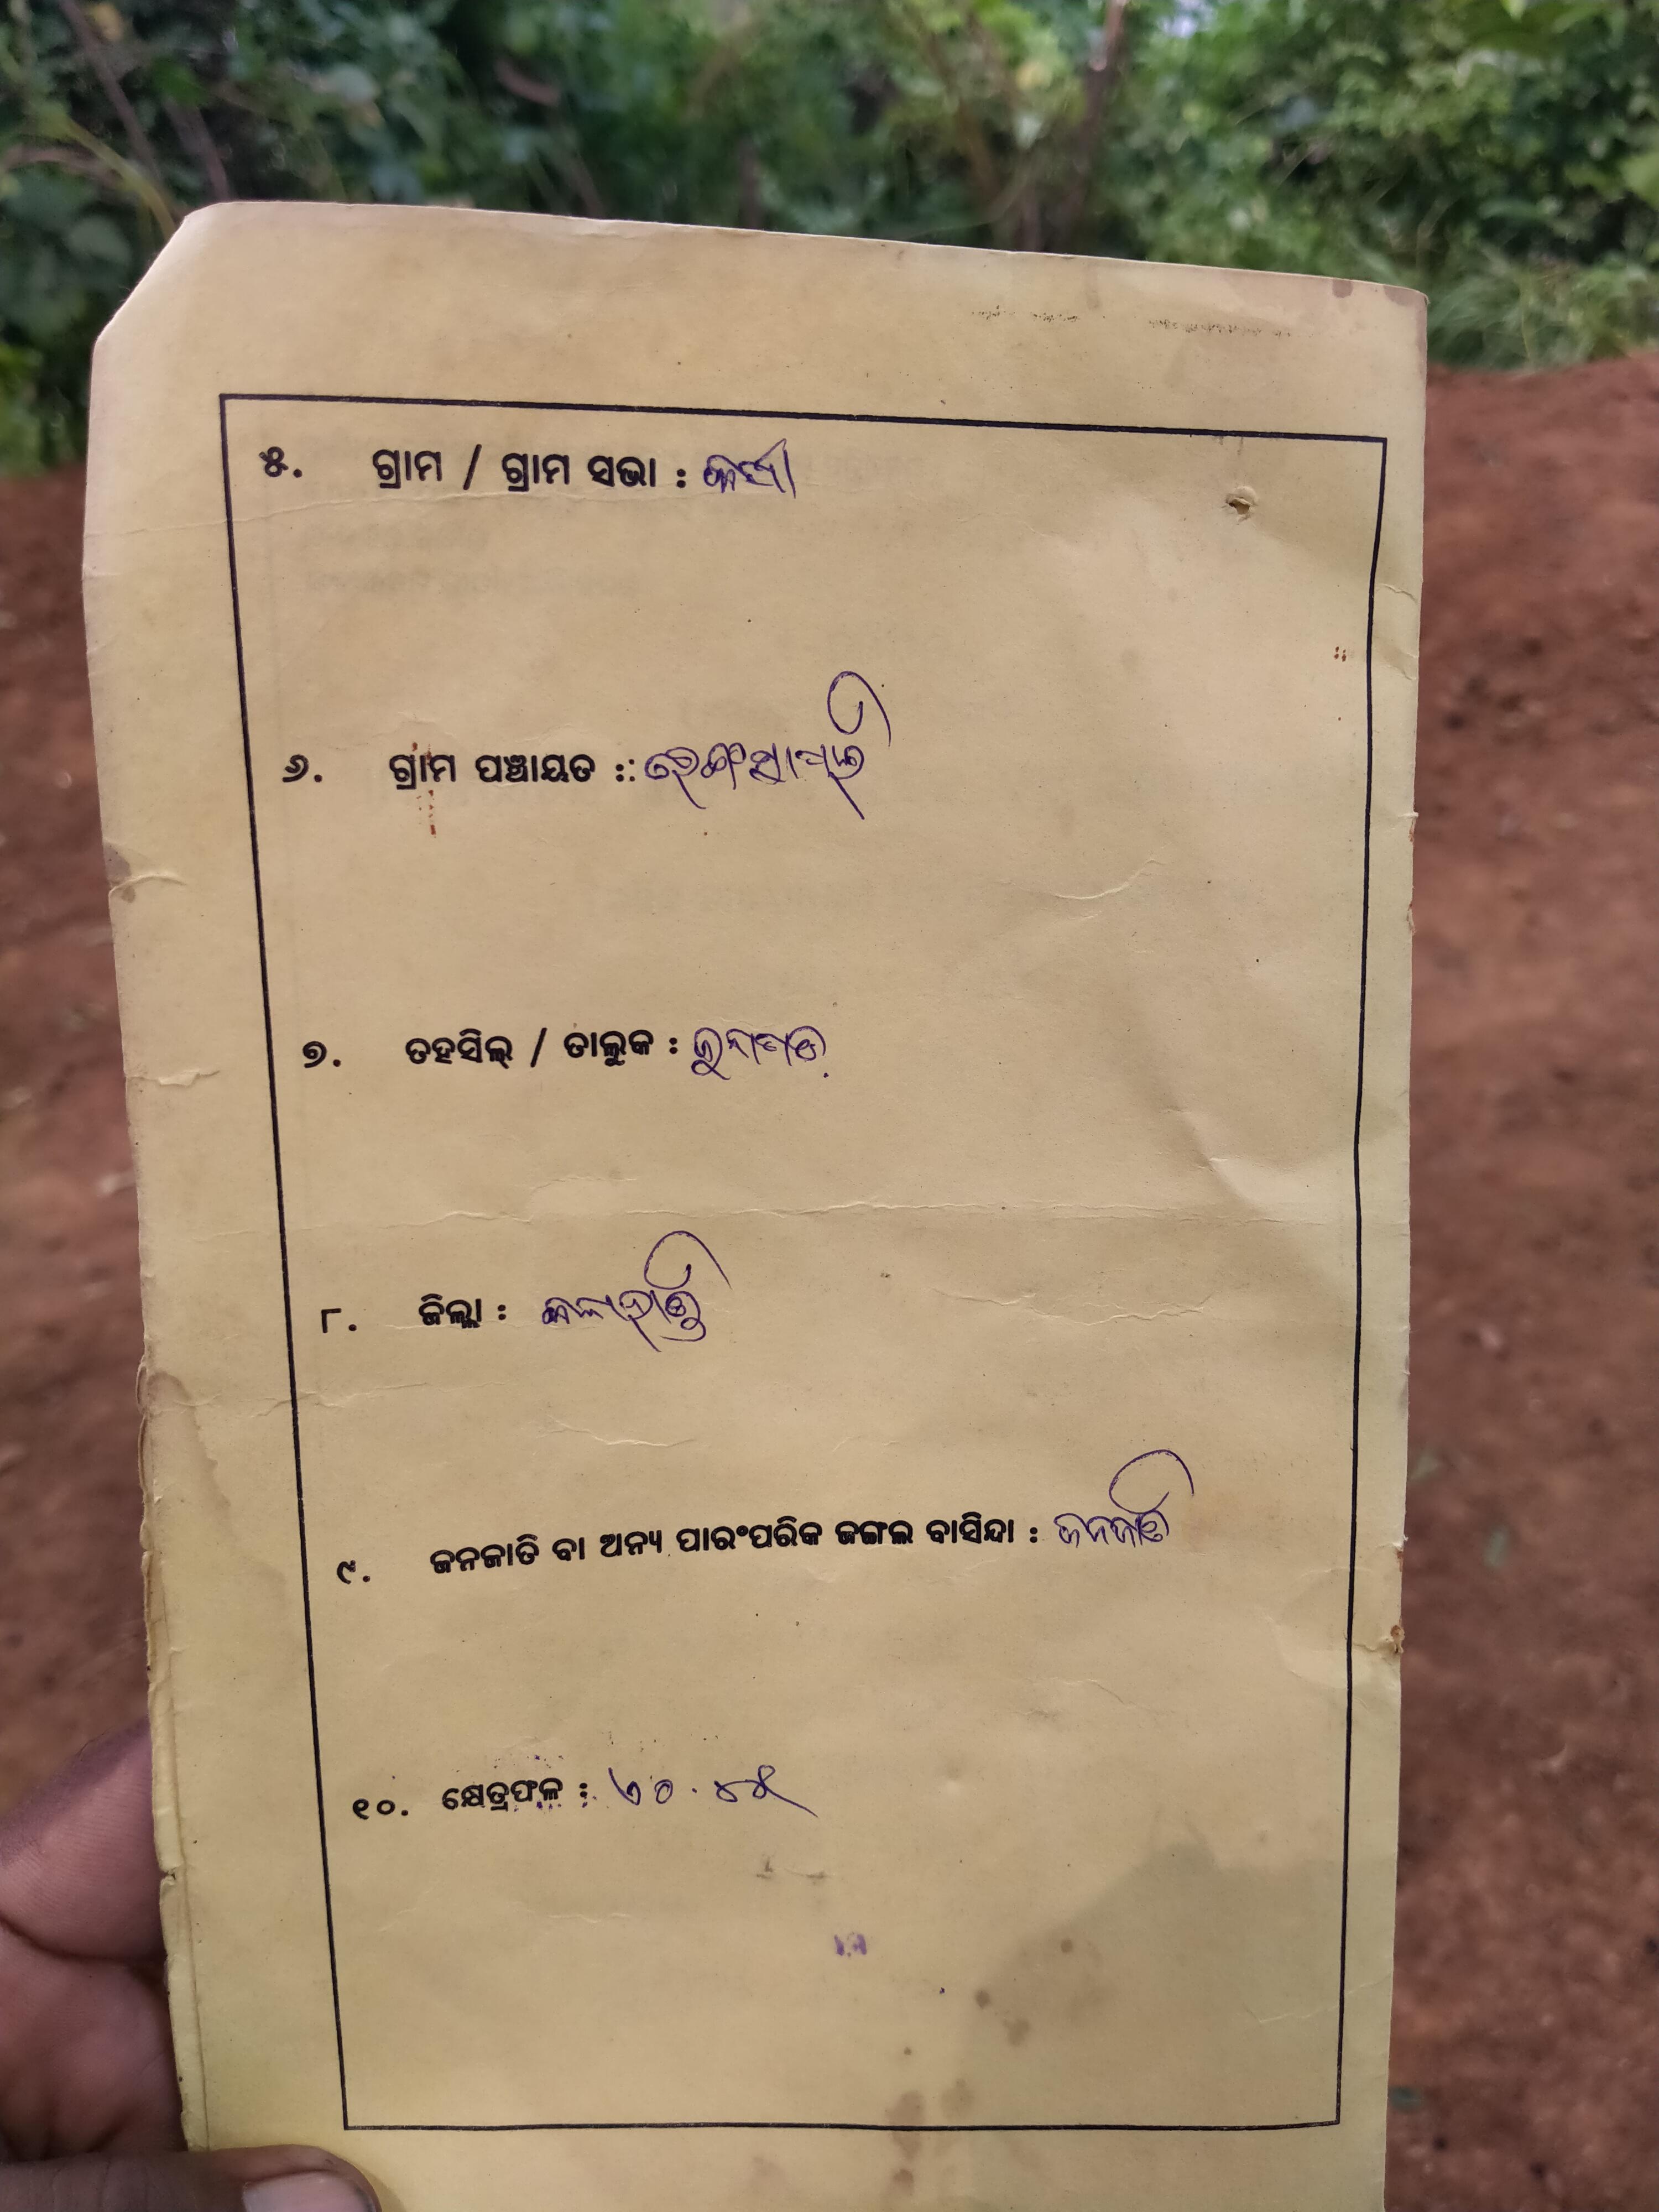 ୫. ଗ୍ରାମ / ଗ୍ରାମ ସଭା :
୬. ଗ୍ରାମ ପଞ୍ଚାୟତ ::
୭. ତହସିଲ୍ / ତାଲୁକ :
୮. ଜିଲ୍ଲା : କଳାହାଣ୍ଡି
୯. ଜନଜାତି ବା ଅନ୍ୟ ପାରଂପରିକ ଜଙ୍ଗଲ ବାସିନ୍ଦା : ଜନଜାତି
୧୦. କ୍ଷେତ୍ରଫଳ :